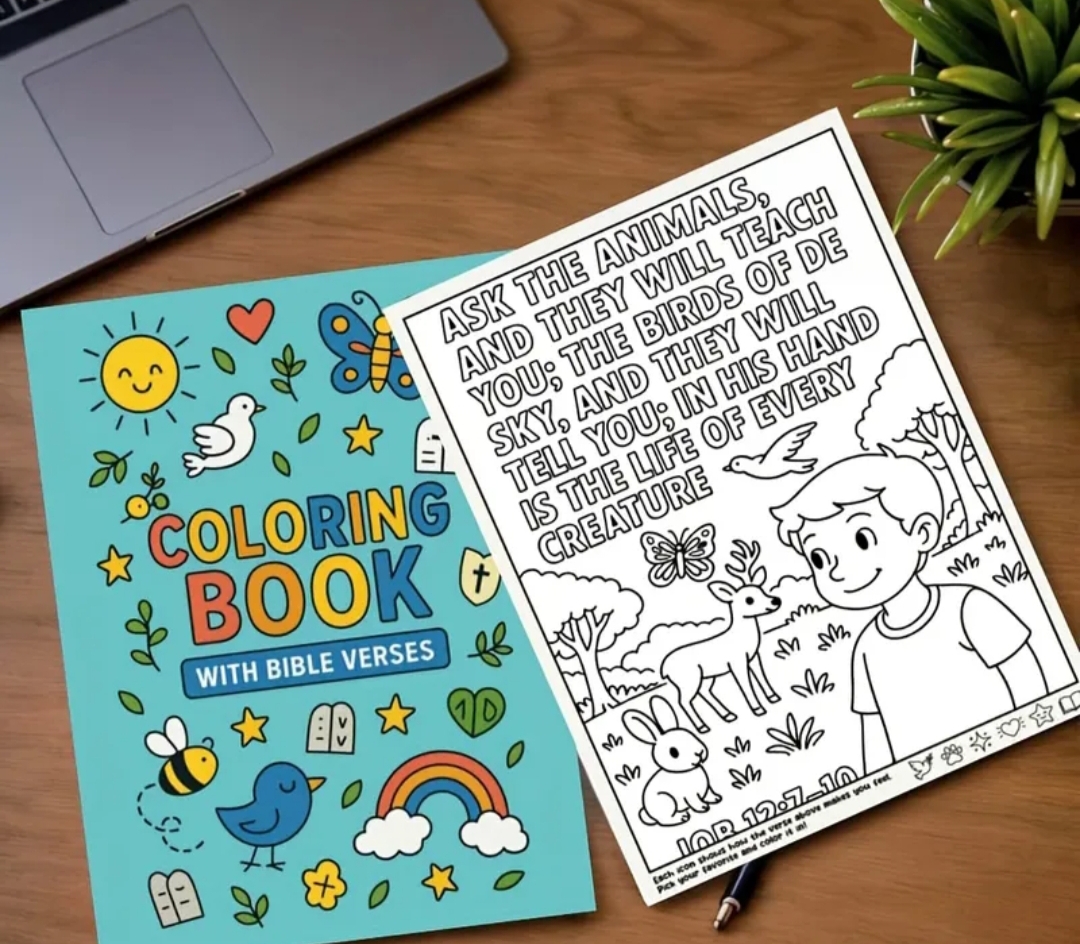 COLORING
BOOK
WITH BIBLE VERSES
ASK THE ANIMALS,
AND THEY WILL TEACH
YOU; THE BIRDS OF DE
SKY, AND THEY WILL
TELL YOU; IN HIS HAND
IS THE LIFE OF EVERY
CREATURE
JOB 12:7–10
Each icon shows how the verse above makes you feel.
Pick your favorite and color it in!